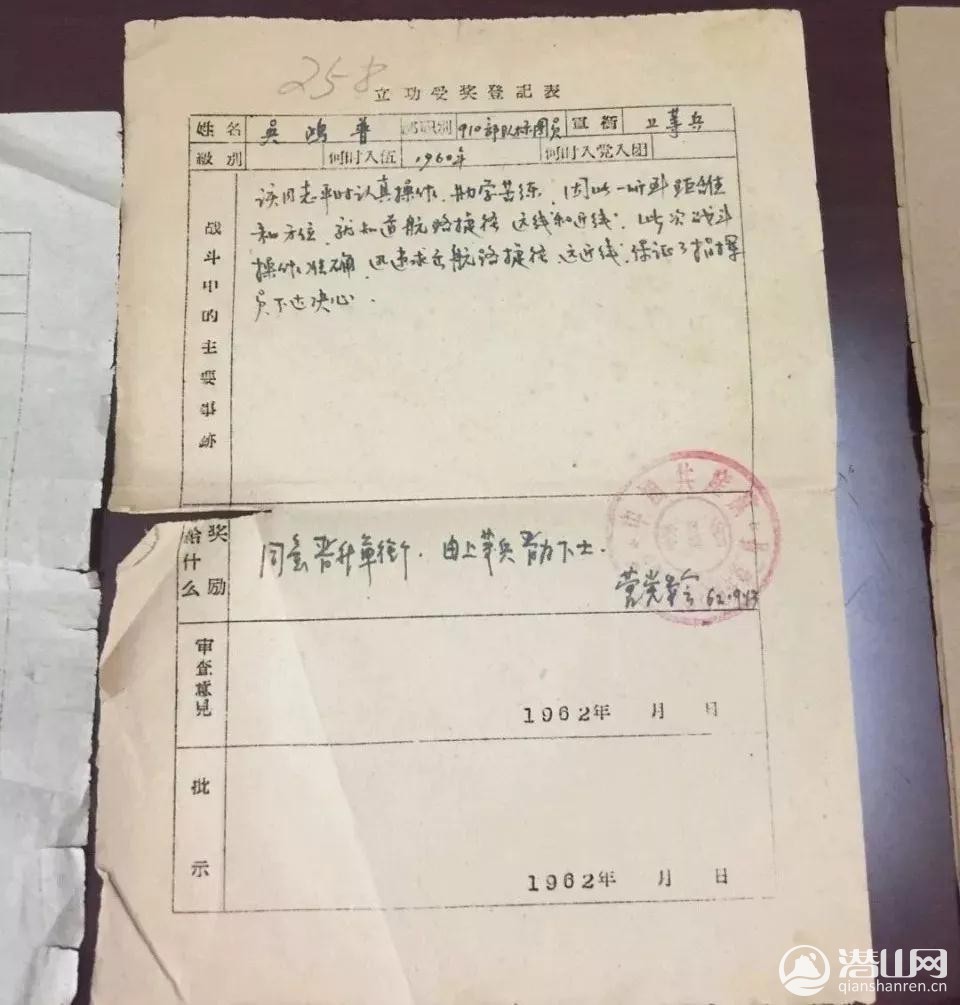 258
立功受奖登記表
姓名 吴鸿普 职别 910部队标图员 軍銜 上等兵
級别 何时入伍 1960年 何时入党入团
战斗中的主要事跡
该同志平时认真操作、勤学苦练,因此一听到距离
和方位,就知道航路捷径远线和近线。此次战斗
操作准确,迅速求出航路捷径、远近线,保证了指挥
员下达决心.
给什么奖励
同意晋升军衔,由上等兵晋为下士.
营党委会 62.9.13
中国共产党
审查意見
1962年 月 日
批示
1962年 月 日
潜山网
qianshanren.cn